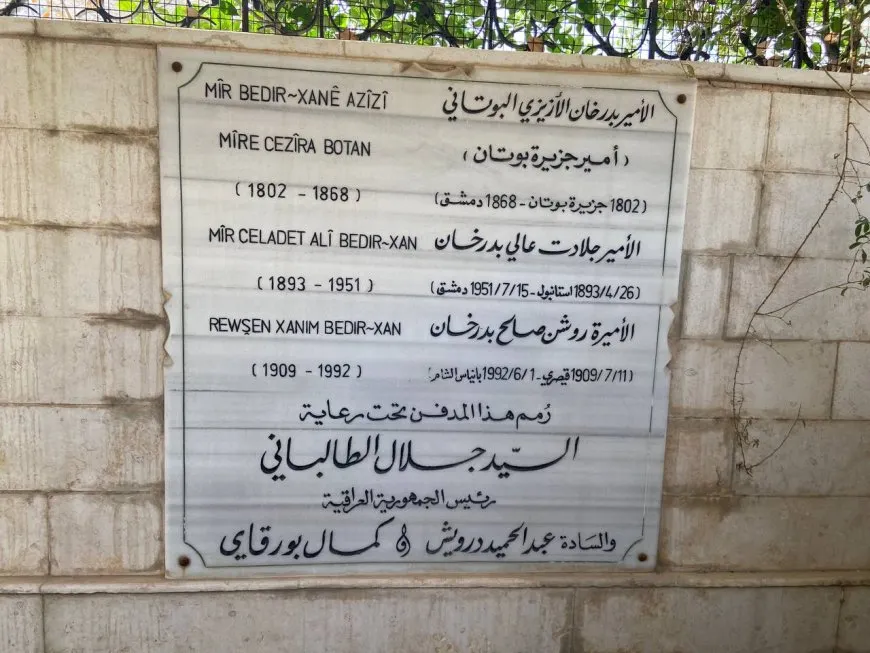 MÎR BEDIR~XANÊ AZÎZÎ الأمير بدرخان الأزيزي البوتاني
MÎRE CEZÎRA BOTAN (أمير جزيرة بوتان)
(1802 - 1868) (1802 جزيرة بوتان - 1868 دمشق)
MÎR CELADET ALÎ BEDIR~XAN الأمير جلادت عالي بدرخان
(1893 - 1951) (1893/4/26 استانبول - 1951/7/15 دمشق)
REWŞEN XANIM BEDIR~XAN الأميرة روشن صالح بدرخان
(1909 - 1992) (1909/7/11 قيصري - 1992/6/1 بانياس الشام)
رُمم هذا المدفن تحت رعاية
السيّد جلال الطالباني
رئيس الجمهورية العراقية
والسادة عبد الحميد درويش و كمال بورقاي